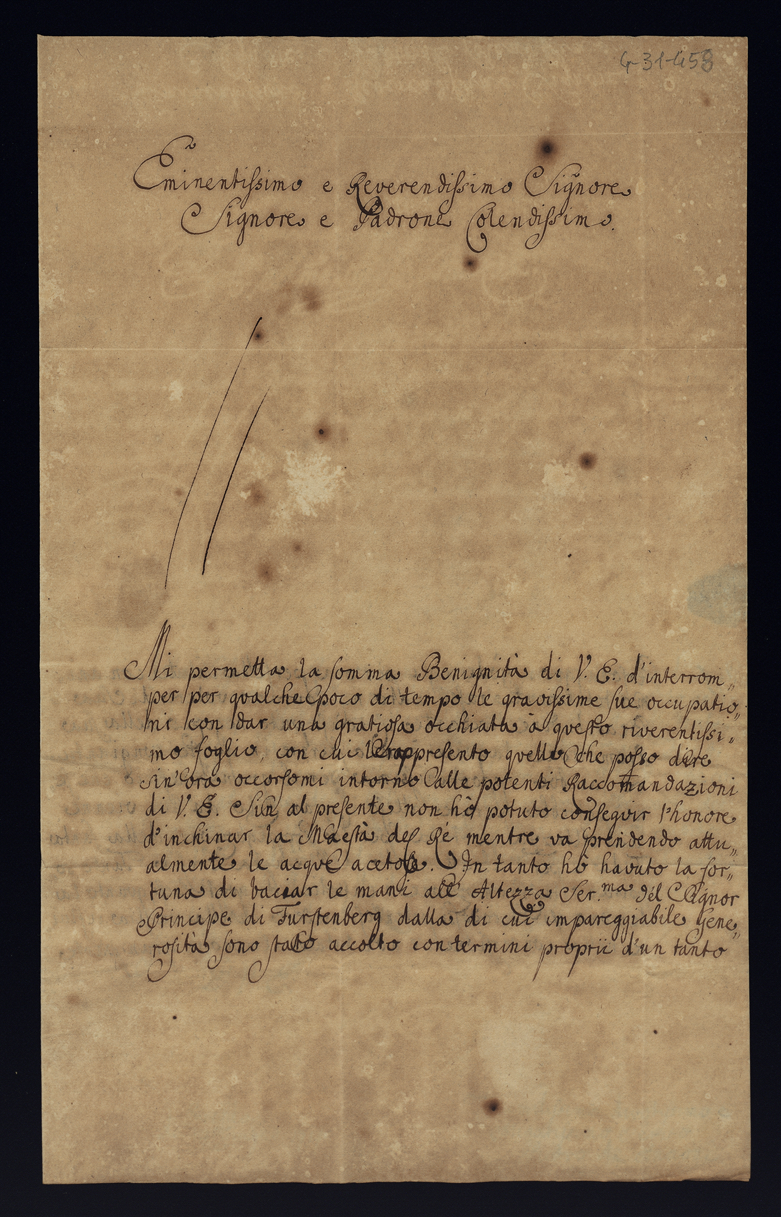 4-31-458
Eminentissimo e Reverendissimo Signore
Signore e Padrone Colendissimo.
Mi permetta la somma Benignità di V. E. d'interrom„
per per qualche poco di tempo le gravissime sue occupatio„
ni con dar una gratiosa occhiata à questo riverentissi„
mo foglio, con cui le rappresento quello che posso dire
sin'ora occorsomi intorno alle potenti Raccomandazioni
di V. E. Sin al presente non hò potuto conseguir l'honore
d'inchinar la Maestà del Rè mentre va prendendo attu„
almente le acque acetose. In tanto hò havuto la for„
tuna di baciar le mani all' Altezza Ser.ma del Signor
Principe di Furstenberg dalla di cui impareggiabile Gene„
rosità sono stato accolto con termini proprii d'un tanto